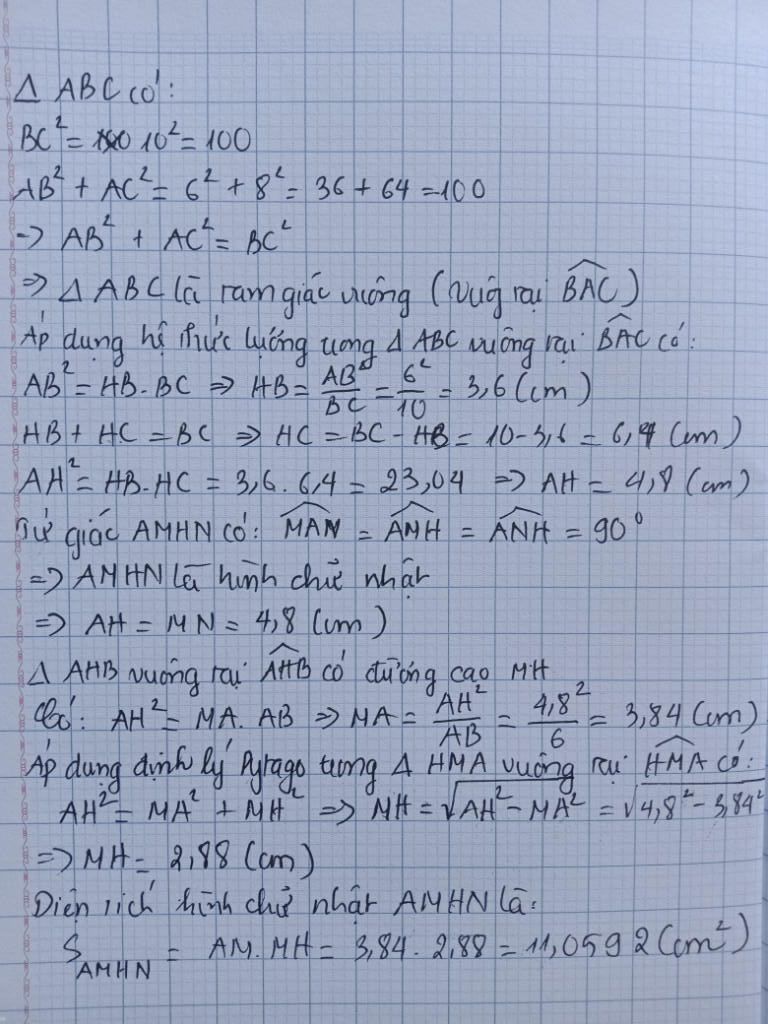 Δ ABC có:
BC² = 10² = 100
AB² + AC² = 6² + 8² = 36 + 64 = 100
→ AB² + AC² = BC²
⇒ Δ ABC là tam giác vuông (Vuôg tại \widehat{BAC})
Áp dụng hệ thức lượng trong Δ ABC vuông tại \widehat{BAC} có:
AB² = HB.BC ⇒ HB = \frac{AB²}{BC} = \frac{6²}{10} = 3,6 (cm)
HB + HC = BC ⇒ HC = BC - HB = 10 - 3,6 = 6,4 (cm)
AH² = HB.HC = 3,6 . 6,4 = 23,04 ⇒ AH = 4,8 (cm)
Tứ giác AMHN có: \widehat{MAN} = \widehat{AMH} = \widehat{ANH} = 90°
⇒ AMHN là hình chữ nhật
⇒ AH = MN = 4,8 (cm)
Δ AHB vuông tại \widehat{AHB} có đường cao MH
Có: AH² = MA. AB ⇒ MA = \frac{AH²}{AB} = \frac{4,8²}{6} = 3,84 (cm)
Áp dụng định lý Pytago trong Δ HMA vuông tại \widehat{HMA} có:
AH² = MA² + MH² ⇒ MH = √(AH² - MA²) = √(4,8² - 3,84²)
⇒ MH = 2,88 (cm)
Diện tích hình chữ nhật AMHN là:
S_{AMHN} = AM. MH = 3,84 . 2,88 = 11,0592 (cm²)